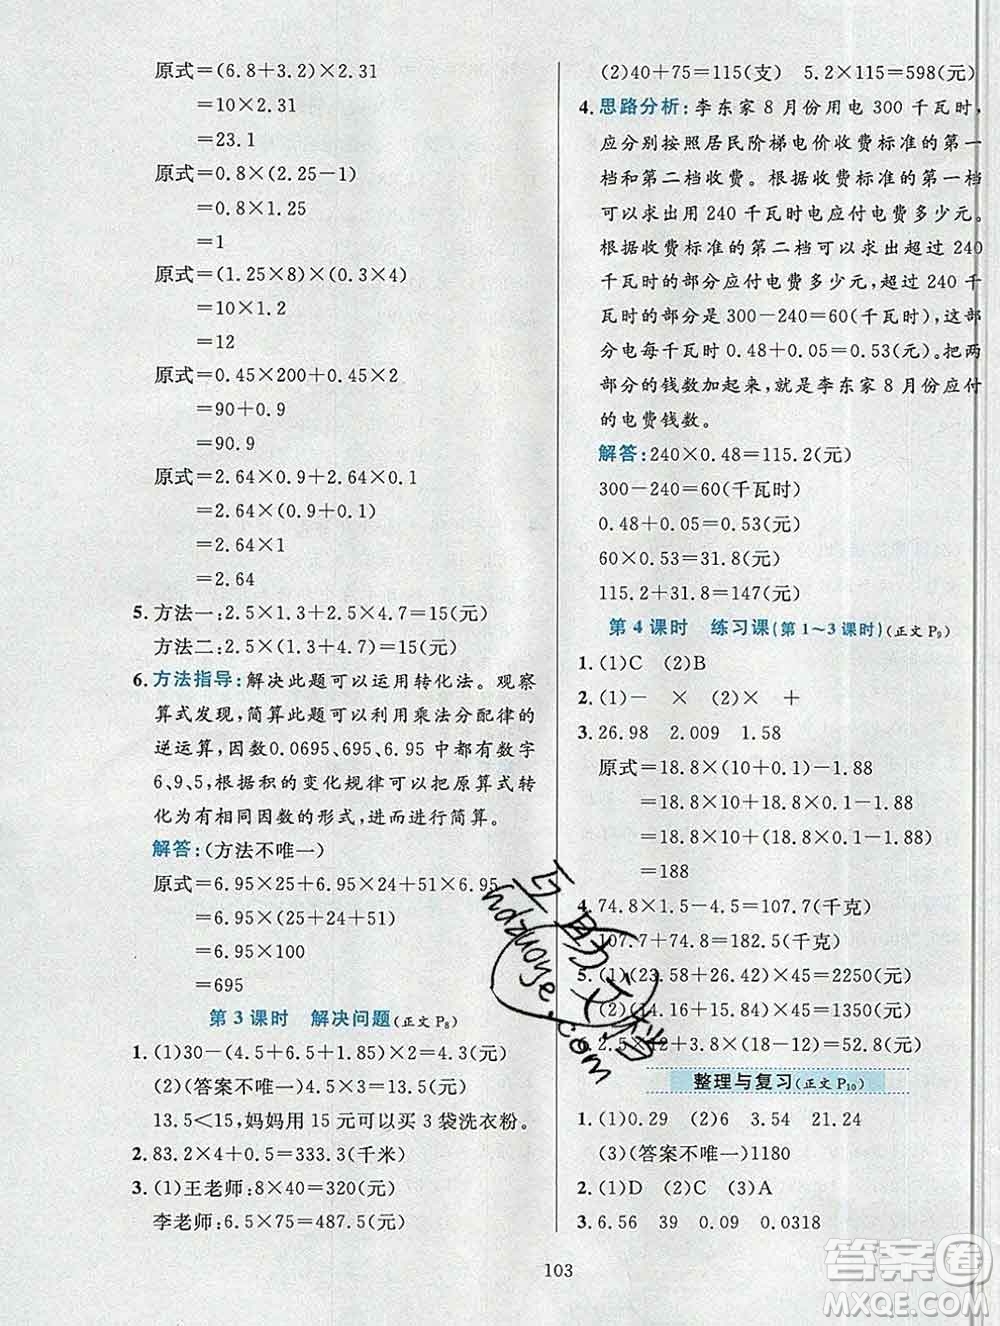 原式=(6.8+3.2)×2.31
=10×2.31
=23.1
原式=0.8×(2.25-1)
=0.8×1.25
=1
原式=(1.25×8)×(0.3×4)
=10×1.2
=12
原式=0.45×200+0.45×2
=90+0.9
=90.9
原式=2.64×0.9+2.64×0.1
=2.64×(0.9+0.1)
=2.64×1
=2.64
5. 方法一:2.5×1.3+2.5×4.7=15(元)
方法二:2.5×(1.3+4.7)=15(元)
6. 方法指导:解决此题可以运用转化法。观察
算式发现,简算此题可以利用乘法分配律的
逆运算,因数0.0695,695,6.95 中都有数字
6,9,5,根据积的变化规律可以把原算式转
化为有相同因数的形式,进而进行简算。
解答:(方法不唯一)
原式=6.95×25+6.95×24+51×6.95
=6.95×(25+24+51)
=6.95×100
=695
第 3 课时 解决问题(正文 P8)
1. (1)30-(4.5+6.5+1.85)×2=4.3(元)
(2)(答案不唯一)
13.5<15,妈妈用 15 元可以买 3 袋洗衣粉。
2. 83.2×4+0.5=333.3(千米)
3. (1)王老师:8×40=320(元)
李老师:6.5×75=487.5(元)
(2)40+75=115(支) 5.2×115=598(元)
4. 思路分析:李东家 8 月份用电 300 千瓦时,
应分别按照居民阶梯电价收费标准的第一
档和第二档收费。根据收费标准的第一档
可以求出用 240 千瓦时电应付电费多少元。
根据收费标准的第二档可以求出超过 240
千瓦时的部分应付电费多少元,超过 240 千
瓦时的部分是 300-240=60(千瓦时),这部
分电每千瓦时 0.48+0.05=0.53(元)。把两
部分的钱数加起来,就是李东家 8 月份应付
的电费钱数。
解答:240×0.48=115.2(元)
300-240=60(千瓦时)
0.48+0.05=0.53(元)
60×0.53=31.8(元)
115.2+31.8=147(元)
第 4 课时 练习课(第 1~3 课时)(正文 P9)
1. (1)C (2)B
2. (1)- × (2)× +
3. 26.98 2.009 1.58
原式=18.8×(10+0.1)-1.88
=18.8×10+18.8×0.1-1.88
=188+1.88-1.88
=188
4. 74.8×1.5-4.5=107.7(千克)
107.7+74.8=182.5(千克)
5. (1)(23.58+26.42)×45=2250(元)
(2)(14.46+15.54)×45=1350(元)
6. 2.5×12+3.8×(18-12)=52.8(元)
整理与复习(正文 P10)
1. (1)0.29 (2)6 3.54 21.24
(3)(答案不唯一)1180
2. (1)D (2)C (3)A
3. 6.56 39 0.09 0.0318
103
互助文档
hdzuoye.com
答案圈
MXQE.COM